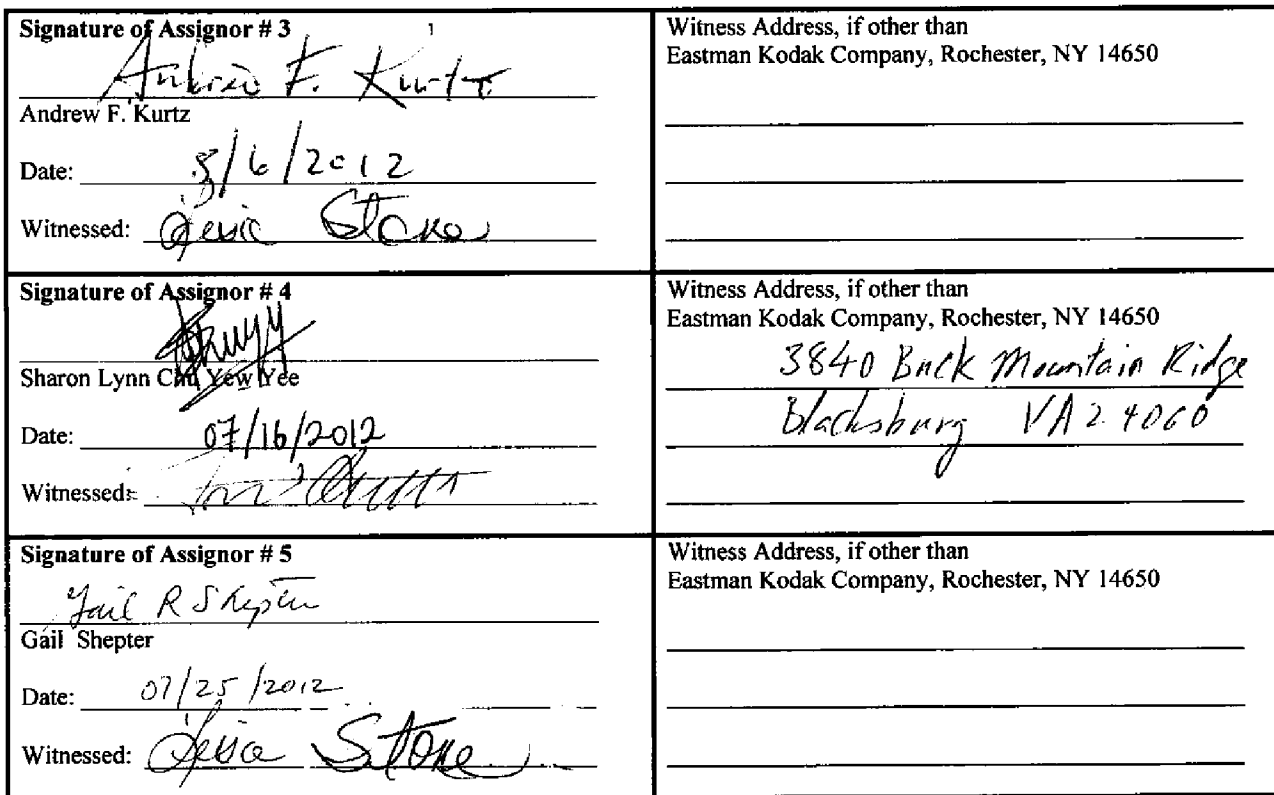 Signature of Assignor # 3
Andrew F. Kurtz
Andrew F. Kurtz
Date: 8/6/2012
Witnessed: Stone
Witness Address, if other than
Eastman Kodak Company, Rochester, NY 14650
Signature of Assignor # 4
Sharon Lynn Chu Yew Yee
Date: 07/16/2012
Witnessed:
Witness Address, if other than
Eastman Kodak Company, Rochester, NY 14650
3840 Buck Mountain Ridge
Blacksburg VA 24060
Signature of Assignor # 5
Gail R Shepter
Gail Shepter
Date: 07/25/2012
Witnessed: Stone
Witness Address, if other than
Eastman Kodak Company, Rochester, NY 14650